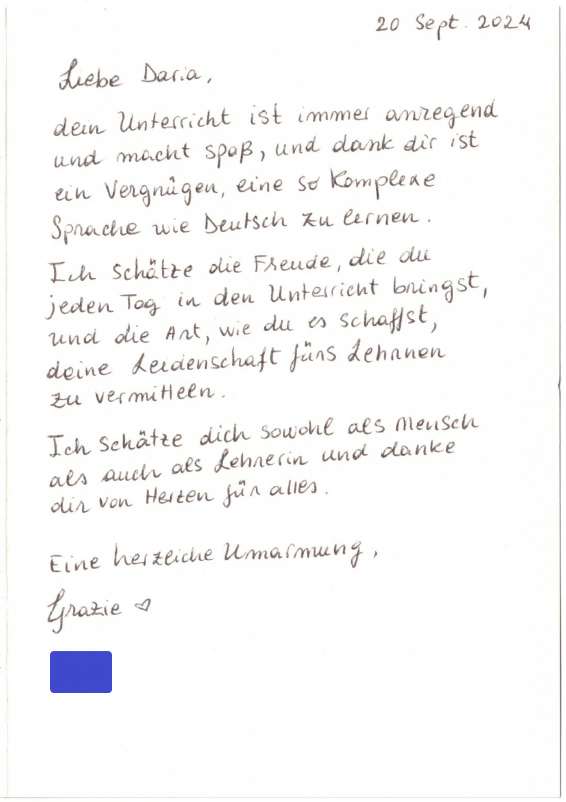 20 Sept. 2024
Liebe Daria,
dein Unterricht ist immer anregend
und macht Spaß, und dank dir ist
ein Vergnügen, eine so Komplexe
Sprache wie Deutsch zu lernen.
Ich schätze die Freude, die du
jeden Tag in den Unterricht bringst,
und die Art, wie du es schaffst,
deine Leidenschaft fürs Lehren
zu vermitteln.
Ich schätze dich sowohl als Mensch
als auch als Lehrerin und danke
dir von Herzen für alles.
Eine herzliche Umarmung,
Grazie ♡